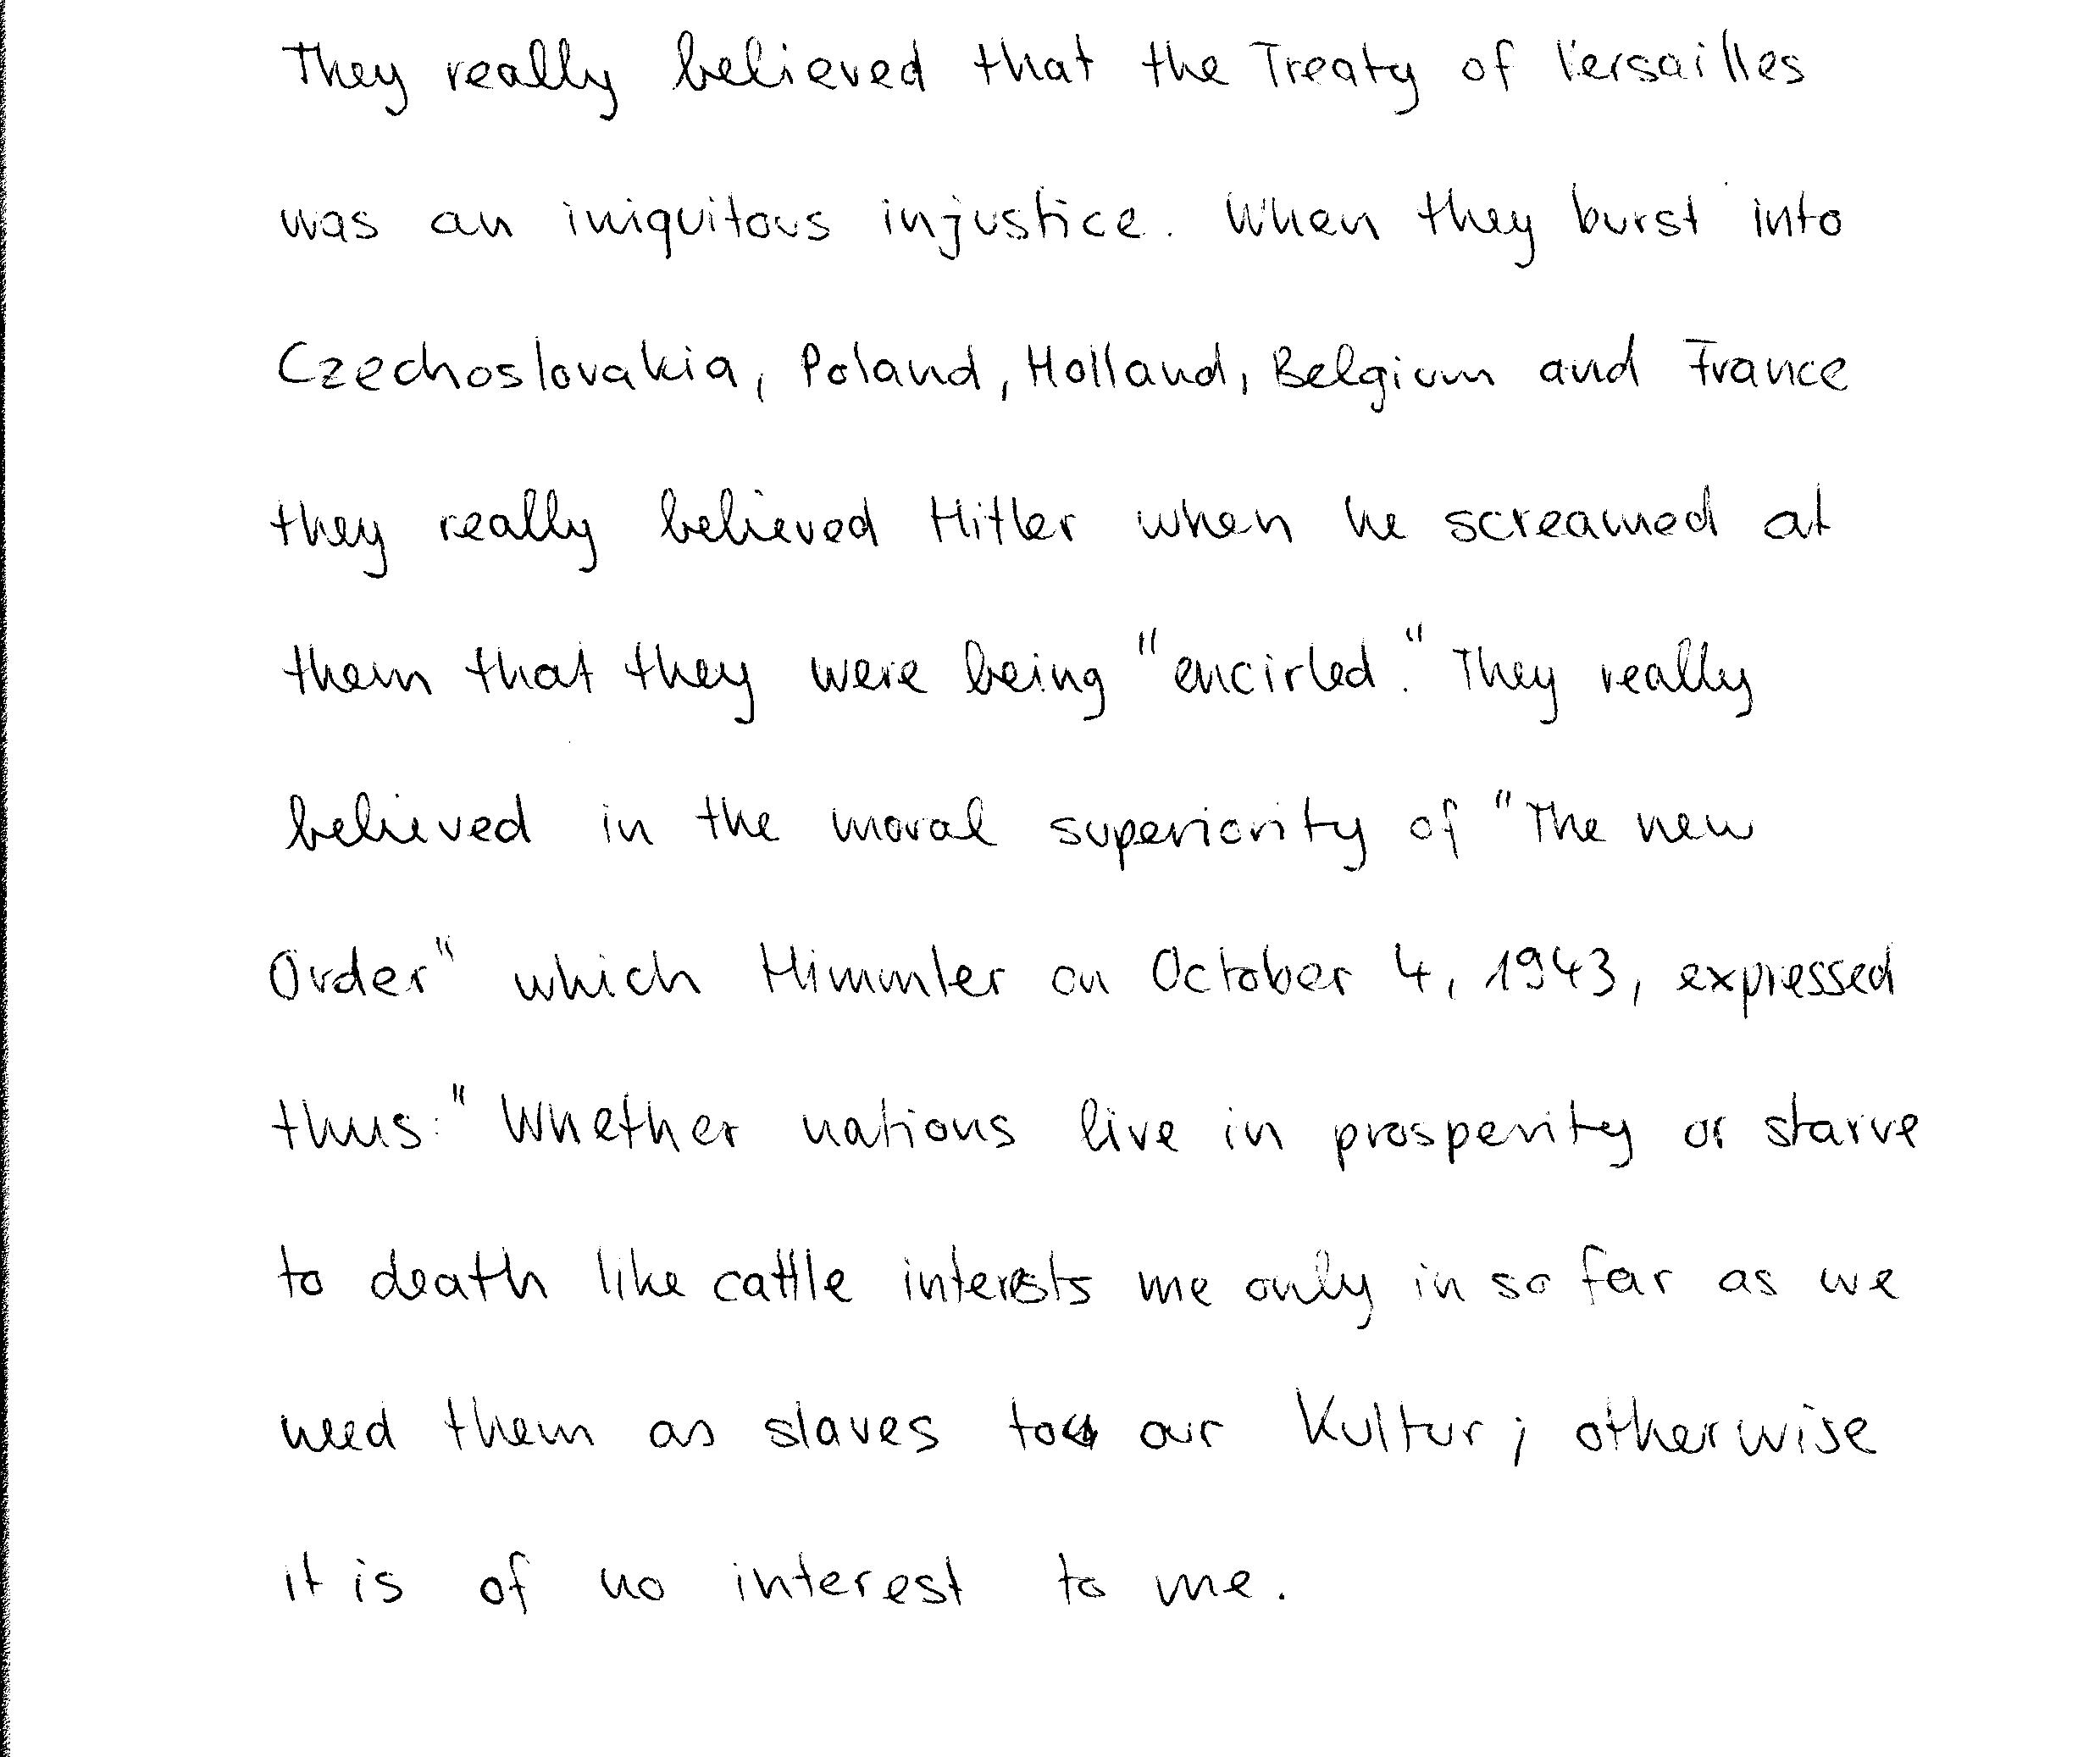 They really believed that the Treaty of Versailles
was an iniquitous injustice. When they burst into
Czechoslovakia, Poland, Holland, Belgium and France
they really believed Hitler when he screamed at
them that they were being "encirled." They really
believed in the moral superiority of "The new
Order" which Himmler on October 4, 1943, expressed
thus:" Whether nations live in prosperity or starve
to death like cattle interests me only in so far as we
need them as slaves to our Kultur; otherwise
it is of no interest to me.